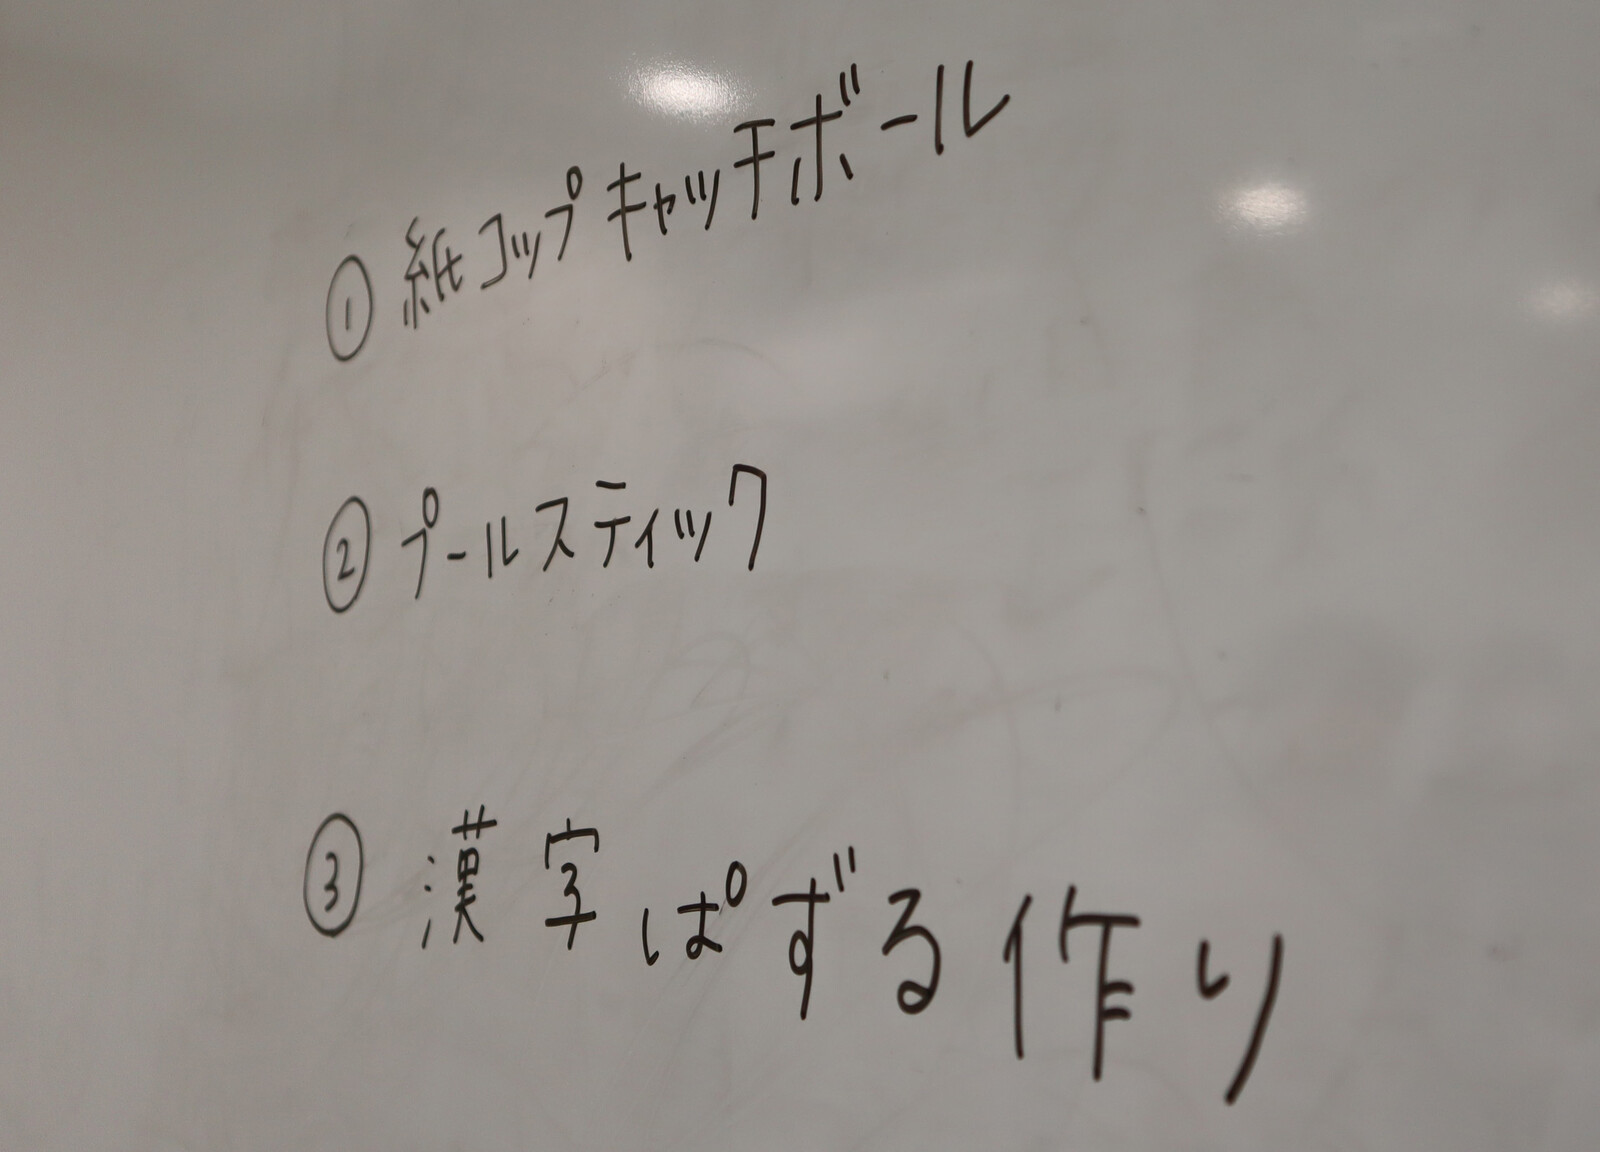 ① 紙コップキャッチボール
② プールスティック
③ 漢字ぱずる作り